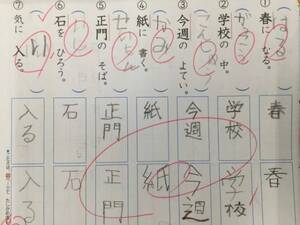 ①春に なる。
はる
春
春
②学校の 中。
がっこう
学校
学校
③今週の よてい。
今週
今週
④紙に 書く。
かみ
紙
紙
⑤正門の そば。
正門
正門
⑥石を ひろう。
いし
石
石
⑦気に 入る。
い
入る
入る